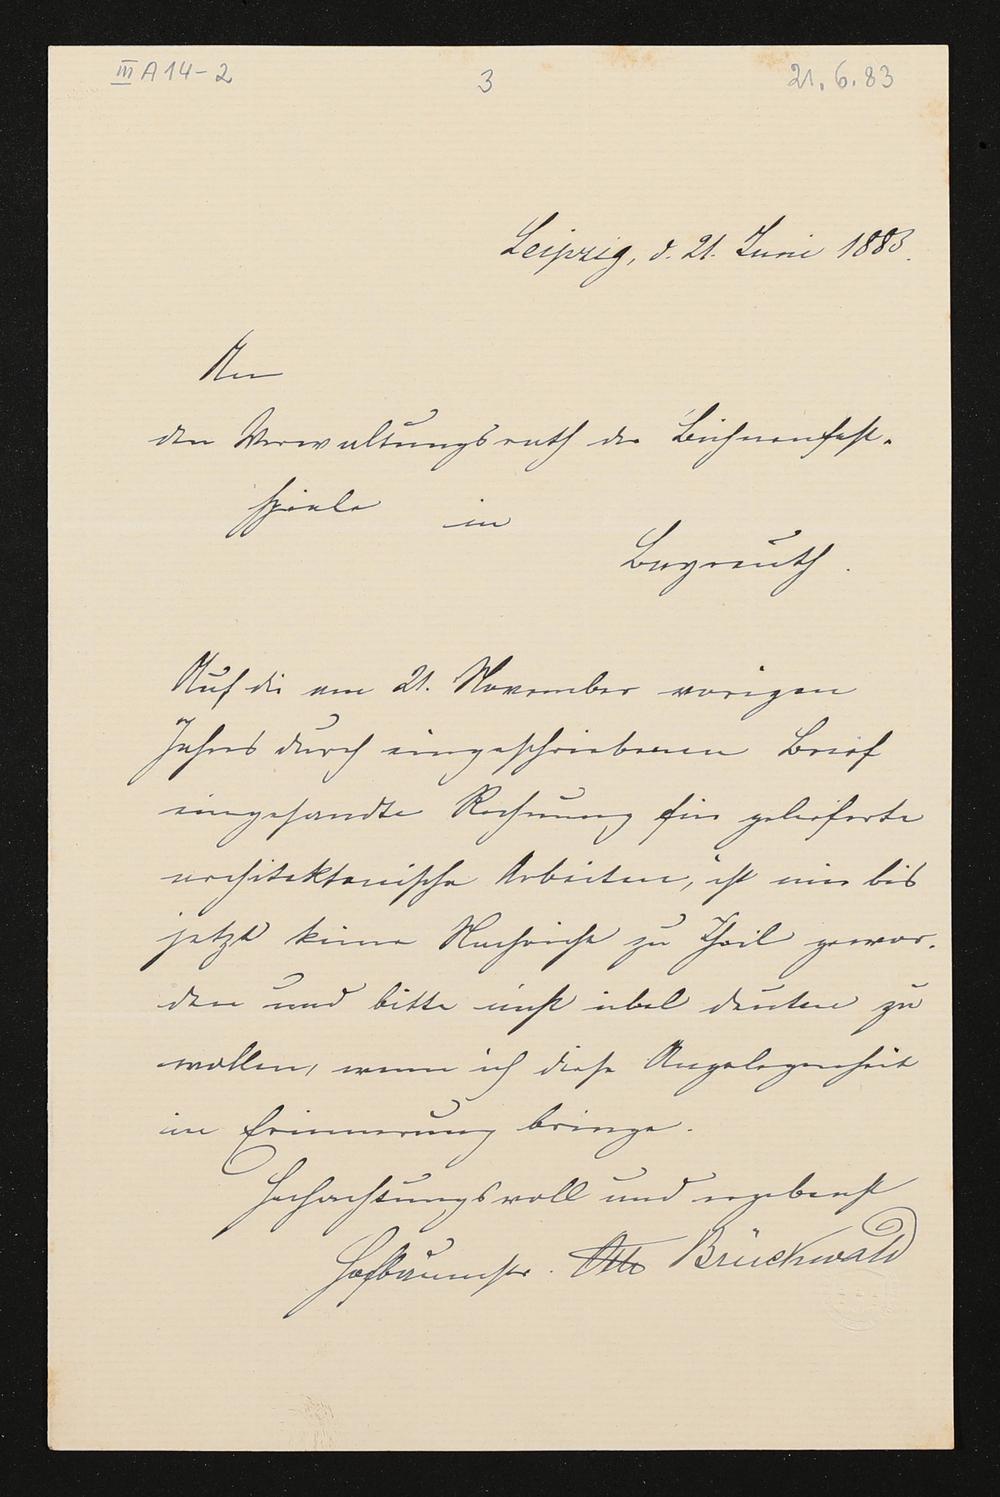 III A 14-2
3
21.6.83
Leipzig, d. 21. Juni 1883.
An
den Verwaltungsrath der Bühnenfest-
spiele in
Bayreuth.
Auf die am 21. November vorigen
Jahres durch eingeschriebenen Brief
eingesandte Rechnung für gelieferte
architektonische Arbeiten, ist mir bis
jetzt keine Nachricht zu Theil gewor-
den und bitte nicht übel deuten zu
wollen, wenn ich diese Angelegenheit
in Erinnerung bringe.
Hochachtungsvoll und ergebenst
Hofbaumstr. Otto Brückwald